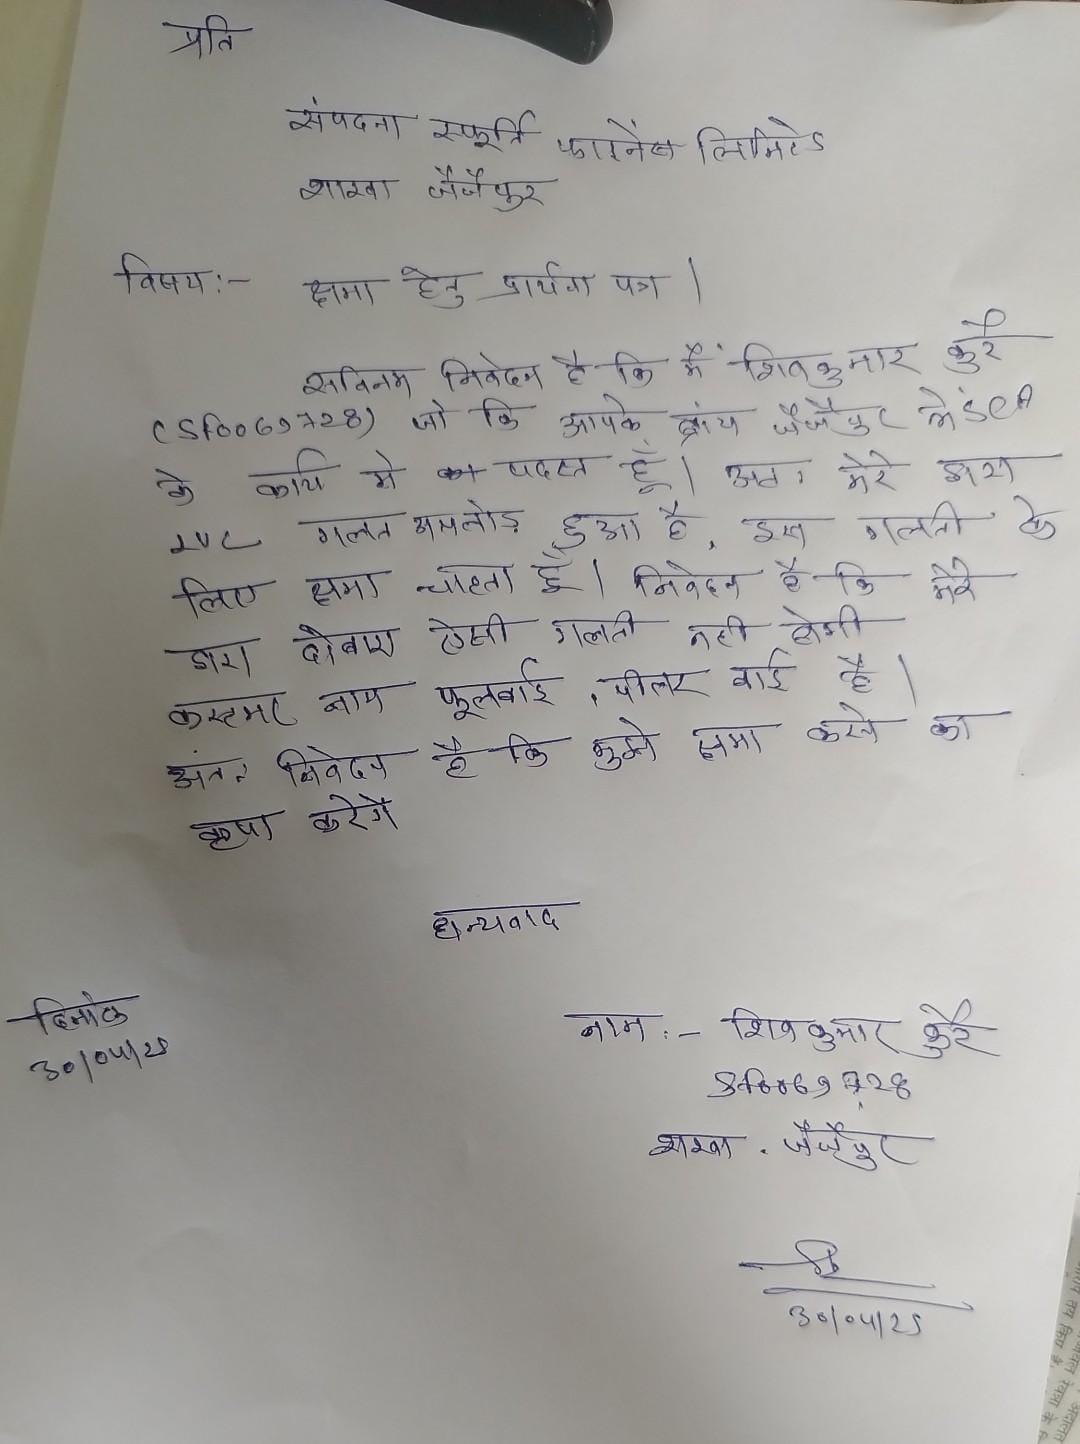 प्रति
संपदना स्फूर्ति फाइनेंस लिमिटेड
शाखा जैजैपुर
विषय:- क्षमा हेतु प्रार्थना पत्र |
सविनम्र निवेदन है कि मैं शिवकुमार कुर्रे
(Sf0069728) जो कि आपके ब्रांच जैजैपुर में SCA
के कार्य मे पदस्त हूँ | अत: मेरे द्वारा
LUC गलत अपलोड़ हुआ है, इस गलती के
लिए क्षमा चाहता हूँ | निवेदन है कि मेरे
द्वारा दोबारा ऐसी गलती नही होगी
कस्टमर नाम फूलबाई, पीलर बाई है |
अंत: निवेदन है कि मुझे क्षमा करने का
कृपा करेगें
धन्यवाद
दिनांक
30/04/25
नाम:- शिवकुमार कुर्रे
Sf0069728
शाखा. जैजैपुर
30/04/25